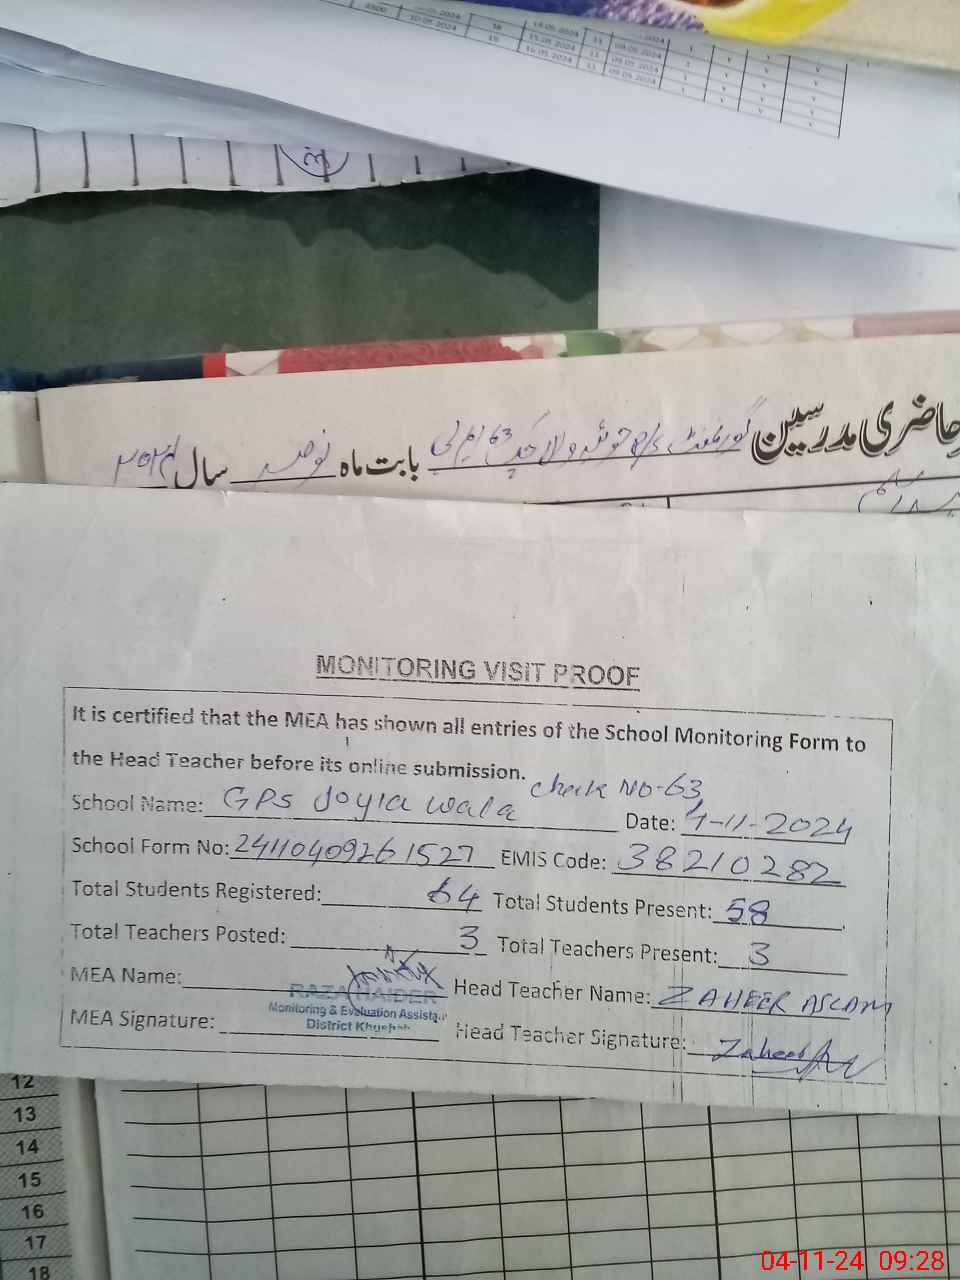 10.05.2024
16.05.2024
09.05.2024
حاضری مدرسین گورنمنٹ
بابت ماہ نومبر سال ۲۰۲۴
MONITORING VISIT PROOF
It is certified that the MEA has shown all entries of the School Monitoring Form to
the Head Teacher before its online submission.
Chek No-63
School Name: GPS Joyia wala Date: 4-11-2024
School Form No: 24110409261527 EMIS Code: 38210282
Total Students Registered: 64 Total Students Present: 58
Total Teachers Posted: 3 Total Teachers Present: 3
MEA Name: RAZA HAIDER Head Teacher Name: ZAHEER ASLAM
Monitoring & Evaluation Assistant
District Khushab
MEA Signature: Head Teacher Signature: Zaheer
12
13
14
15
16
17
18
04-11-24 09:28